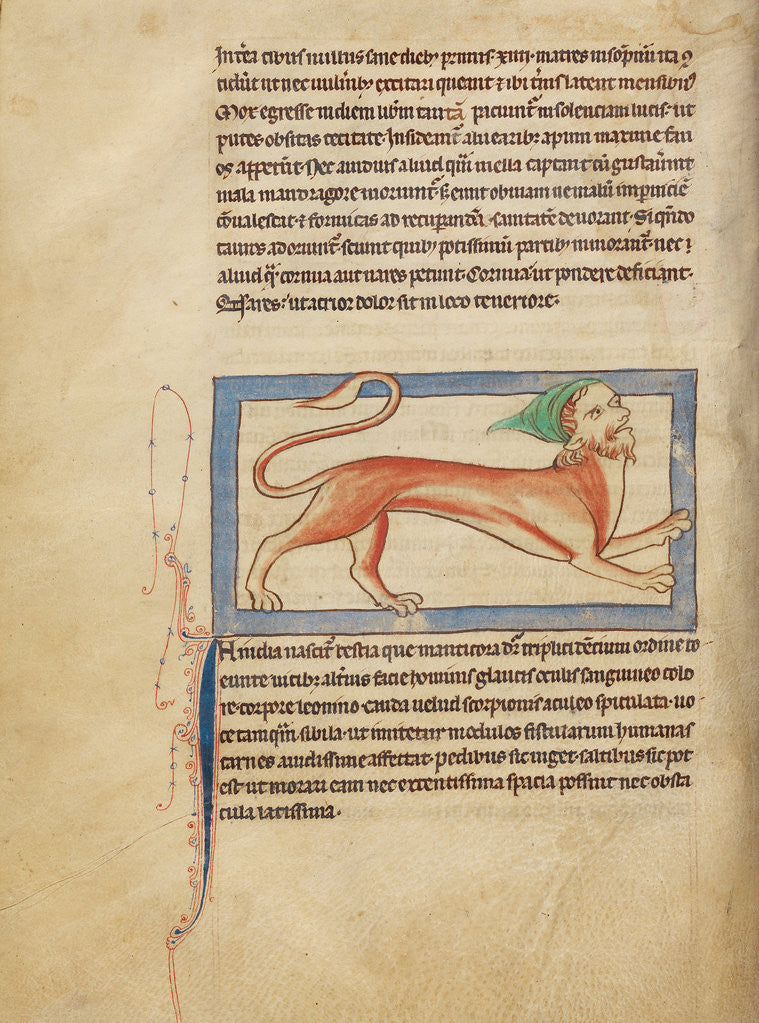 Int̃ea cibus nullus sane dieb; primis· xiiii· matres insõpniũ ita 9
cidũt ut nec uulnib; excitari queant ⁊ ibi t̃nis latent mensibus
Mox egresse in diem lib̃m tantã paciunt̃ insolenciam lucis· ut
putes obsitas cecitate· Insidiant̃ aluearib; apum maxime fau
os appetũt· Nec auidius aliud q̃m mella captant cũ gustauint
mala mandragore moriunt̃· Sꝫ eunt obuiam ne malũ in ꝑniciẽ
cõualescat· ⁊ formicas ad recuꝑandã sanitatẽ deuorant· Si qñdo
tauros adoriunt̃· sciunt quib; potissimũ partib; inmorant̃· nec
aliud q̃ cornua aut nares petunt· Cornua ut pondere deficiant·
Nares· ut acrior dolor sit in loco teneriore·
In india nascit̃ bestia que manticora dr̃ triplici dẽtium ordine co
eunte uicib; alt̃nis facie hominis glaucis oculis sanguineo colo
re· corpore leonino· cauda uelud scorpionis aculeo spiculata· uo
ce tam q̃m sibila· ut imitetur modulos fistularum humanas
carnes auidissime affectat· pedibus sic uiget· saltibus sic pot
est ut morari eam nec extentissima spacia possint nec obsta
cula latissima·